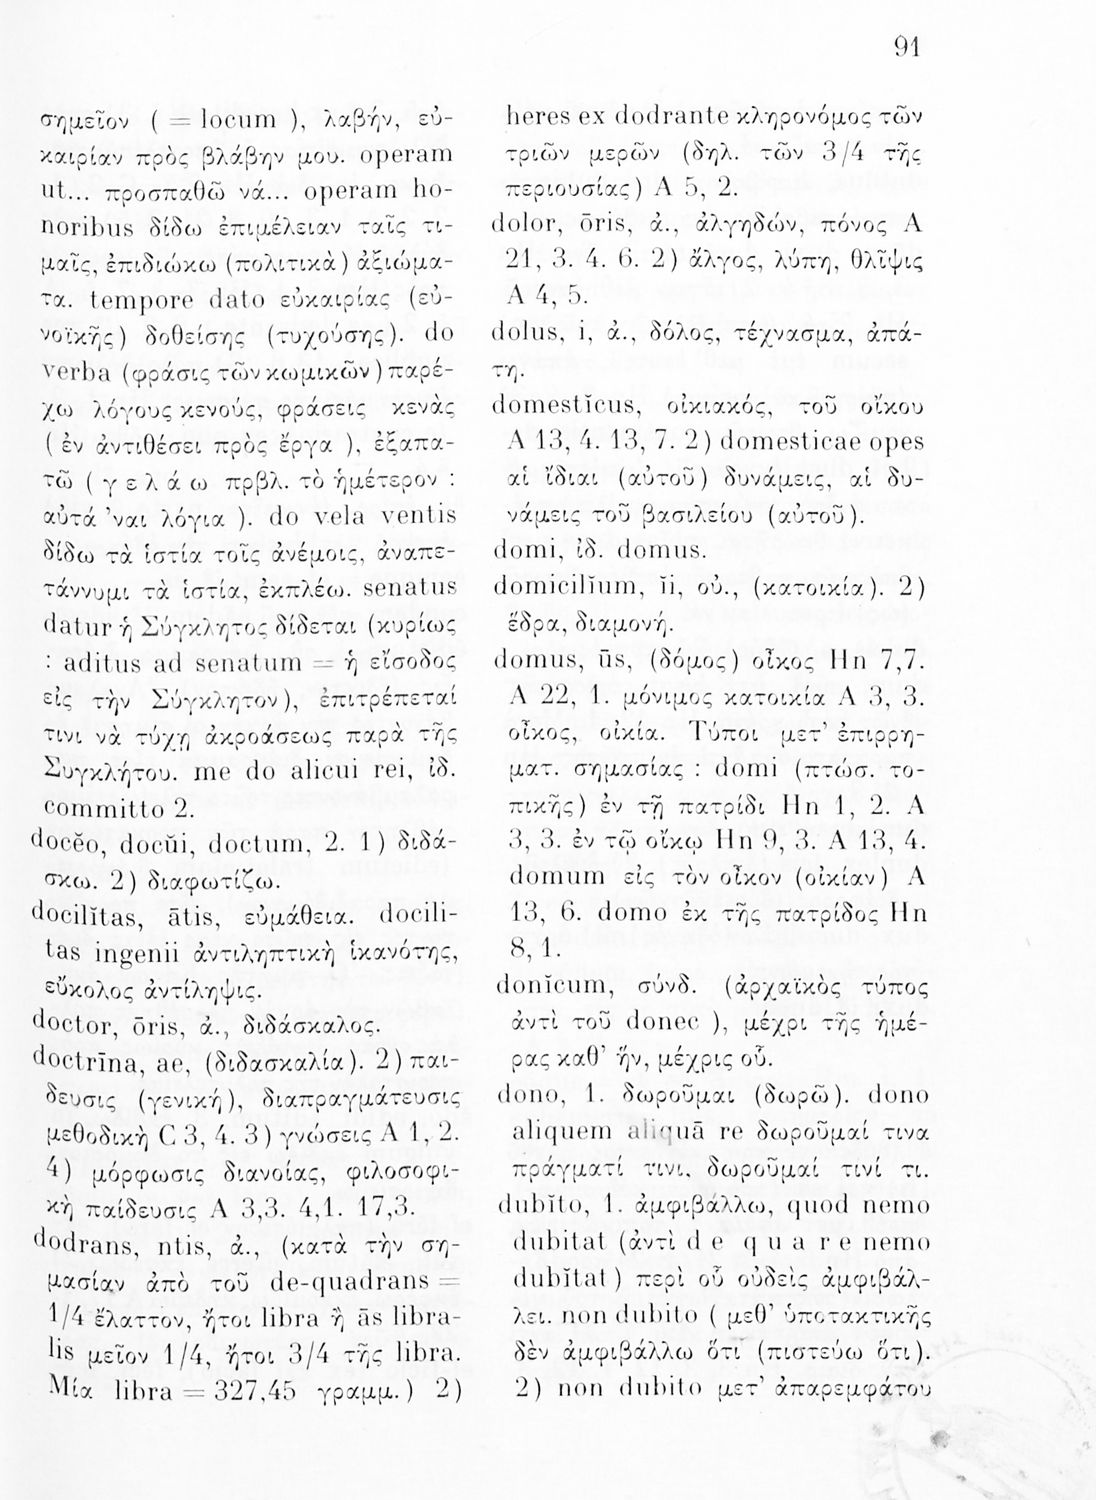 91
σημεῖον ( = locum ), λαβήν, εὐ-
καιρίαν πρὸς βλάβην μου. operam
ut... προσπαθῶ νά... operam ho-
noribus δίδω ἐπιμέλειαν ταῖς τι-
μαῖς, ἐπιδιώκω (πολιτικὰ) ἀξιώμα-
τα. tempore dato εὐκαιρίας (εὐ-
νοϊκῆς) δοθείσης (τυχούσης). do
verba (φράσις τῶν κωμικῶν) παρέ-
χω λόγους κενούς, φράσεις κενὰς
( ἐν ἀντιθέσει πρὸς ἔργα ), ἐξαπα-
τῶ ( γ ε λ ά ω πρβλ. τὸ ἡμέτερον :
αὐτά 'ναι λόγια ). do vela ventis
δίδω τὰ ἱστία τοῖς ἀνέμοις, ἀναπε-
τάννυμι τὰ ἱστία, ἐκπλέω. senatus
datur ἡ Σύγκλητος δίδεται (κυρίως
: aditus ad senatum = ἡ εἴσοδος
εἰς τὴν Σύγκλητον), ἐπιτρέπεταί
τινι νὰ τύχῃ ἀκροάσεως παρὰ τῆς
Συγκλήτου. me do alicui rei, ἰδ.
committo 2.
docĕo, docŭi, doctum, 2. 1) διδά-
σκω. 2) διαφωτίζω.
docilĭtas, ātis, εὐμάθεια. docili-
tas ingenii ἀντιληπτικὴ ἱκανότης,
εὔκολος ἀντίληψις.
doctor, ōris, ἀ., διδάσκαλος.
doctrīna, ae, (διδασκαλία). 2) παι-
δευσις (γενική), διαπραγμάτευσις
μεθοδικὴ C 3, 4. 3) γνώσεις A 1, 2.
4) μόρφωσις διανοίας, φιλοσοφι-
κὴ παίδευσις A 3,3. 4,1. 17,3.
dodrans, ntis, ἀ., (κατὰ τὴν ση-
μασίαν ἀπὸ τοῦ de-quadrans =
1/4 ἔλαττον, ἤτοι libra ἢ ās libra-
lis μεῖον 1/4, ἤτοι 3/4 τῆς libra.
Μία libra = 327,45 γραμμ.) 2)
heres ex dodrante κληρονόμος τῶν
τριῶν μερῶν (δηλ. τῶν 3/4 τῆς
περιουσίας) A 5, 2.
dolor, ōris, ἀ., ἀλγηδών, πόνος A
21, 3. 4. 6. 2) ἄλγος, λύπη, θλῖψις
A 4, 5.
dolus, i, ἀ., δόλος, τέχνασμα, ἀπά-
τη.
domestĭcus, οἰκιακός, τοῦ οἴκου
A 13, 4. 13, 7. 2) domesticae opes
αἱ ἴδιαι (αὐτοῦ) δυνάμεις, αἱ δυ-
νάμεις τοῦ βασιλείου (αὐτοῦ).
domi, ἰδ. domus.
domicilĭum, ĭi, οὐ., (κατοικία). 2)
ἕδρα, διαμονή.
domus, ūs, (δόμος) οἶκος Hn 7,7.
A 22, 1. μόνιμος κατοικία A 3, 3.
οἶκος, οἰκία. Τύποι μετ' ἐπιρρη-
ματ. σημασίας : domi (πτώσ. το-
πικῆς) ἐν τῇ πατρίδι Hn 1, 2. A
3, 3. ἐν τῷ οἴκῳ Hn 9, 3. A 13, 4.
domum εἰς τὸν οἶκον (οἰκίαν) A
13, 6. domo ἐκ τῆς πατρίδος Hn
8, 1.
donĭcum, σύνδ. (ἀρχαϊκὸς τύπος
ἀντὶ τοῦ donec ), μέχρι τῆς ἡμέ-
ρας καθ' ἥν, μέχρις οὗ.
dono, 1. δωροῦμαι (δωρῶ). dono
aliquem aliquā re δωροῦμαί τινα
πράγματί τινι. δωροῦμαί τινί τι.
dubĭto, 1. ἀμφιβάλλω, quod nemo
dubitat (ἀντὶ d e q u a r e nemo
dubĭtat) περὶ οὗ οὐδεὶς ἀμφιβάλ-
λει. non dubito ( μεθ' ὑποτακτικῆς
δὲν ἀμφιβάλλω ὅτι (πιστεύω ὅτι).
2) non dubito μετ' ἀπαρεμφάτου